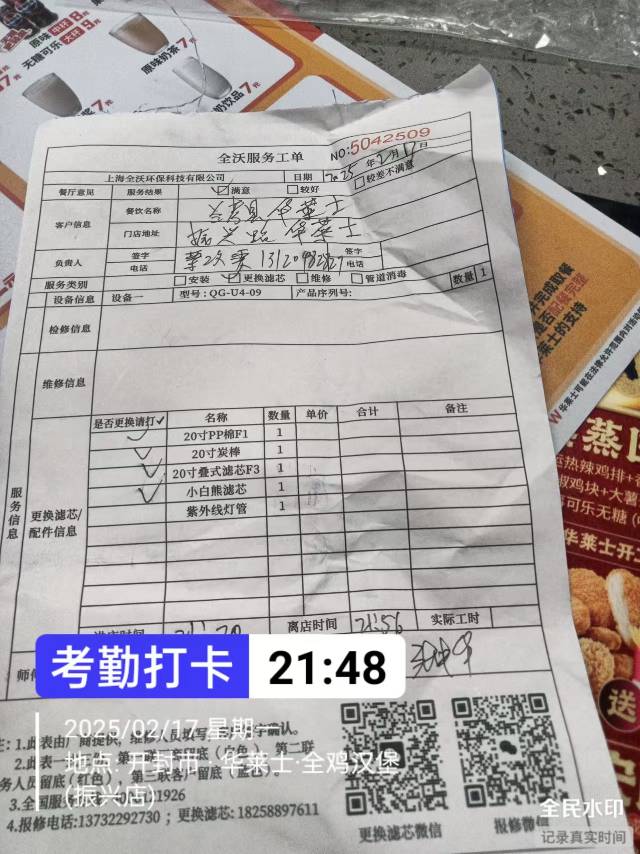 原味 中杯 8元
无糖可乐 大杯 9元
原味奶茶 7元
7元
奶饮品 7元
全沃服务工单
NO:5042509
上海全沃环保科技有限公司 日期 2025年2月17日
餐厅意见 服务结果 ☑满意 □较好 □较差不满意
客户信息 餐饮名称 兰考县华莱士
门店地址 振兴路华莱士
负责人 签字 电话 签字 电话
服务类别 □安装 ☑更换滤芯 □维修 □管道消毒
设备信息 设备一 型号:QG-U4-09 产品序列号: 数量 1
检修信息
维修信息
服务信息
更换滤芯/配件信息
是否更换请打✓ 名称 数量 单价 合计 备注
✓ 20寸PP棉F1 1
✓ 20寸炭棒 1
✓ 20寸叠式滤芯F3 1
✓ 小白熊滤芯 1
紫外线灯管 1
进店时间 离店时间 21:56 实际工时
考勤打卡 21:48
2025/02/17 星期一
地点: 开封市 · 华莱士·全鸡汉堡
(振兴店)
注: 1.此表由厂商提供,
字确认。
第二联
务人员留底(红色)、第三联客户留底(蓝色)
3.全国服
21926
4.报修电话:13732292730 ; 更换滤芯:18258897611
更换滤芯微信
报修微信
全民水印
记录真实时间
华莱士的支持
华莱士开
送